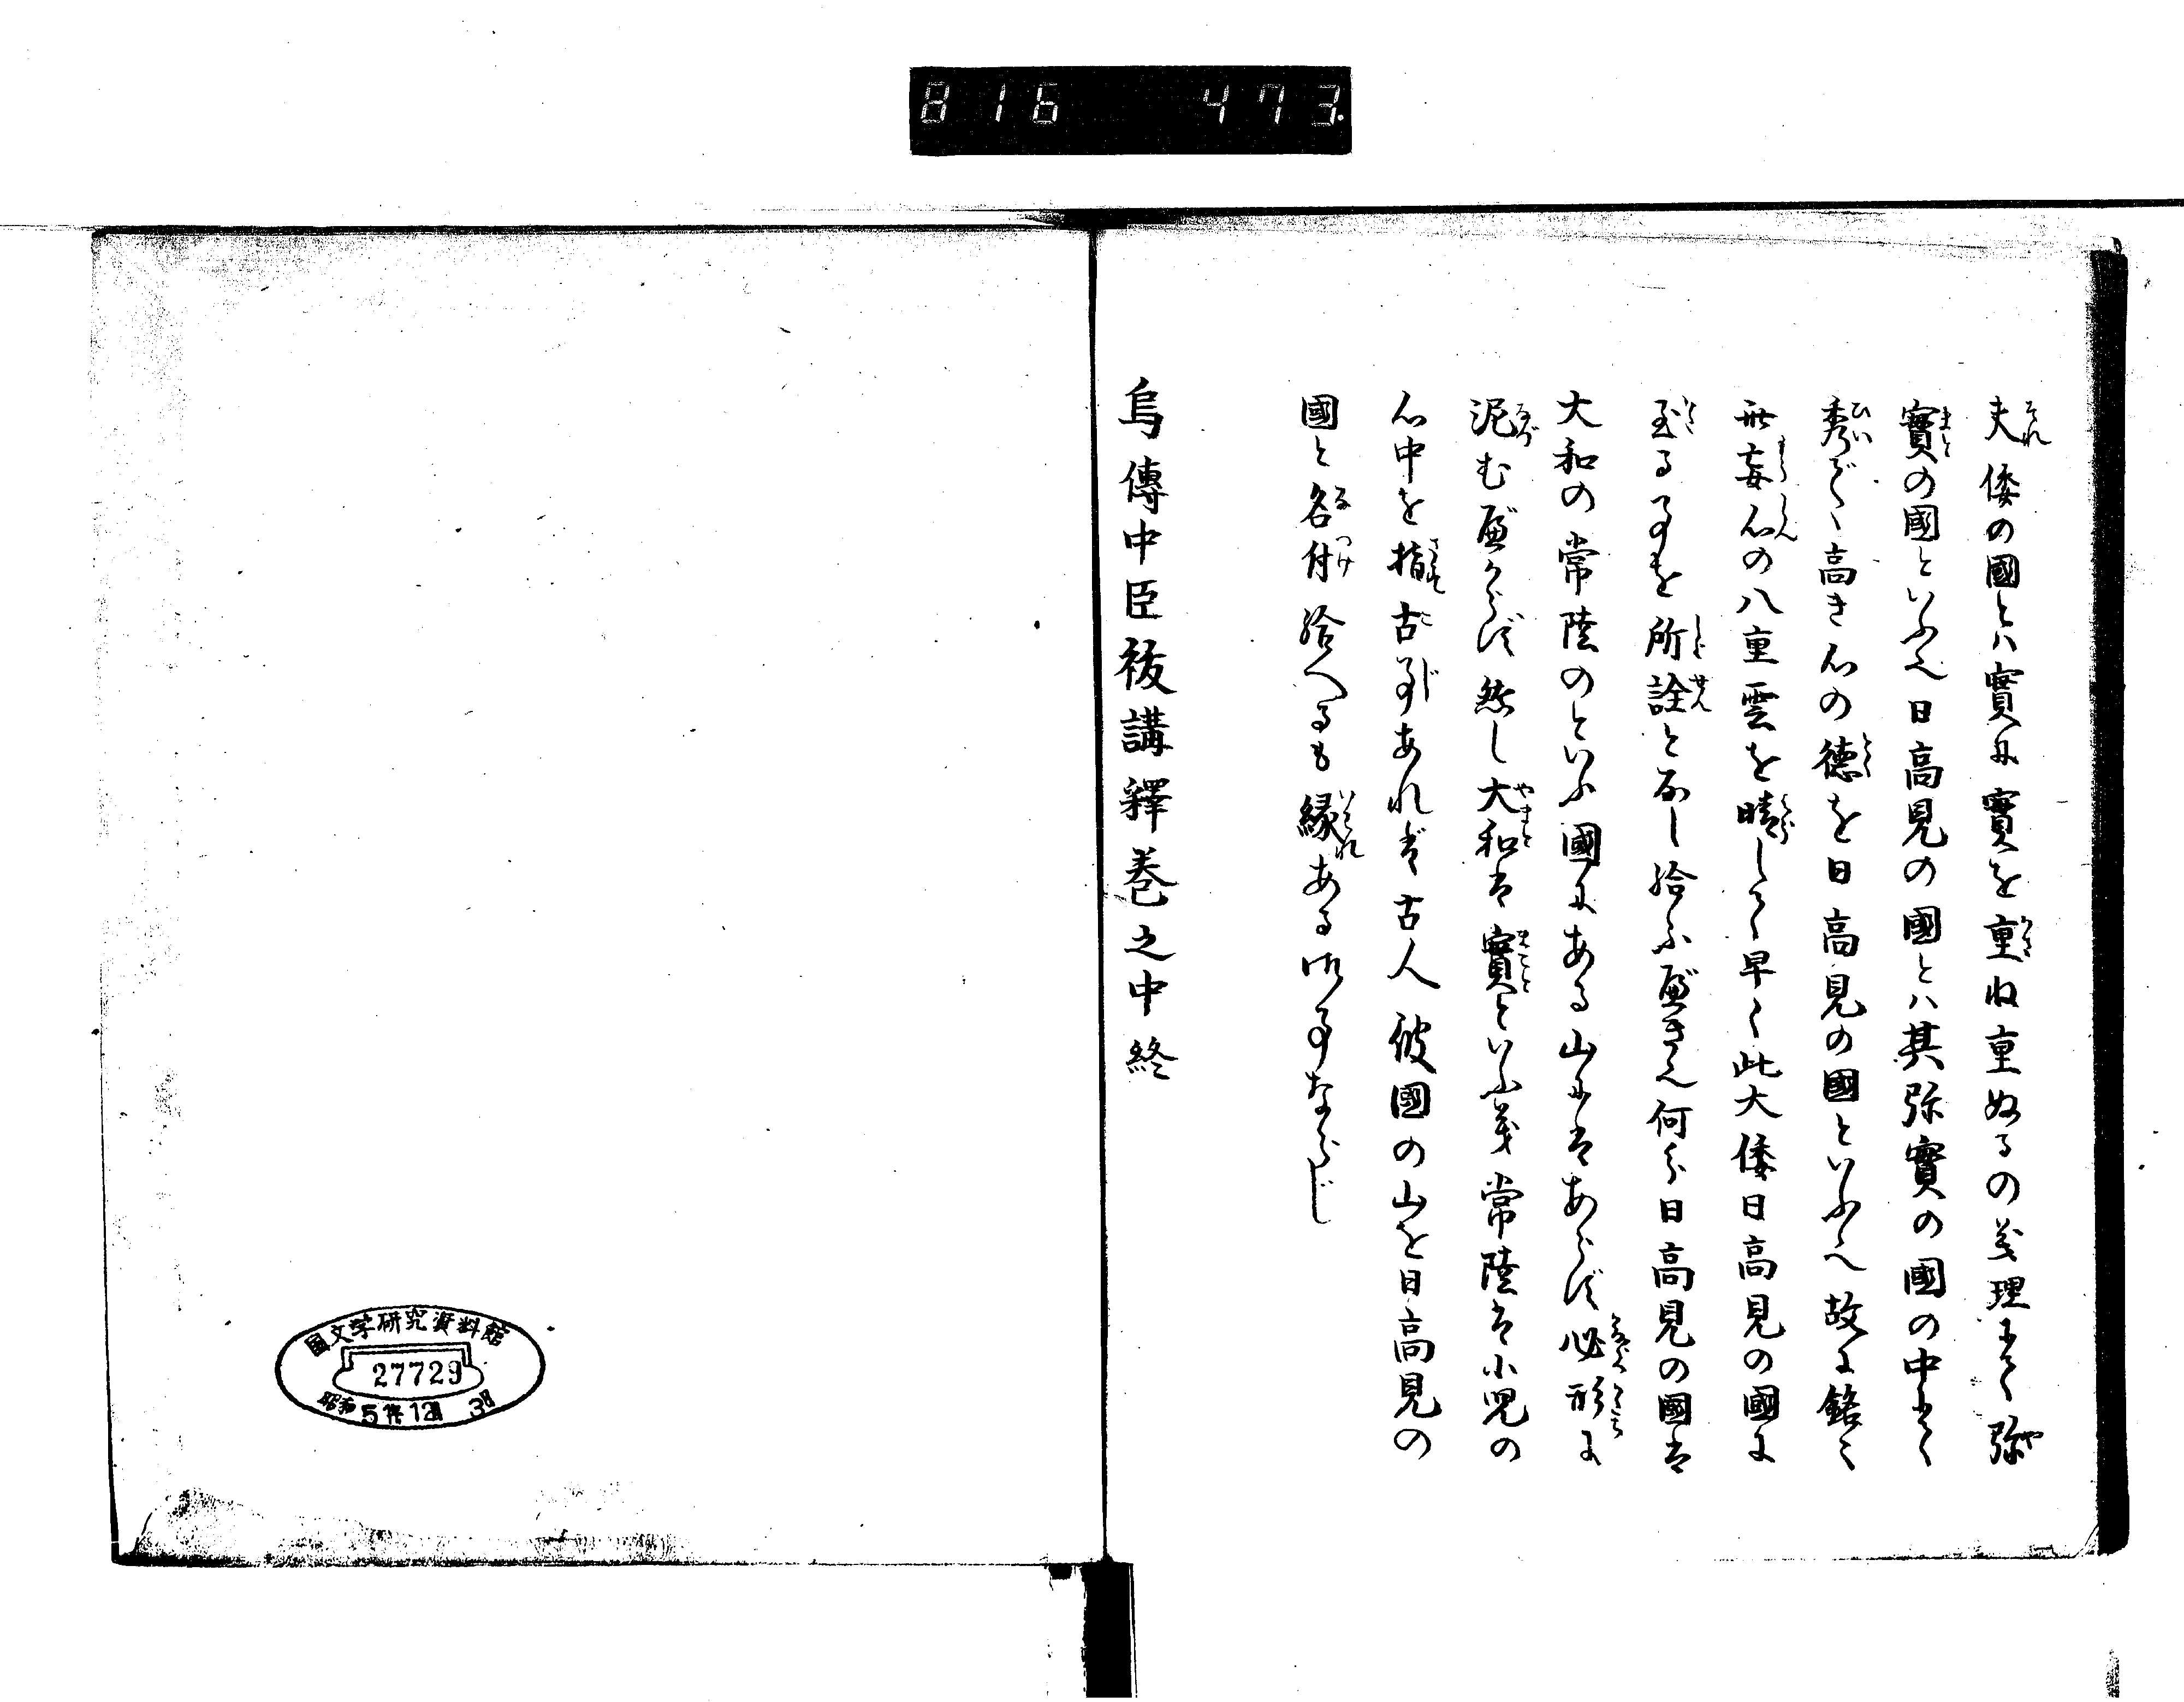 816 473.
夫倭の國とハ實に實を重ね重ぬるの義理にて弥
實の國といふ也日高見の國とハ其弥實の國の中にて
秀でゝ高き心の徳を日高見の國といふ也故に銘々
無妄心の八重雲を晴して早く此大倭日高見の國に
至る事を所詮となし給ふべき也何ぞ日高見の國は
大和の常陸のといふ國にある山にはあらず必形に
泥むべからず然し大和は實といふ義常陸は小児の
心中を指古事あれば古人彼國の山を日高見の
國と名付給へるも縁ある御事ならじ
烏傳中臣祓講釋巻之中終
國文学研究資料館
27729
昭和51年12月3日